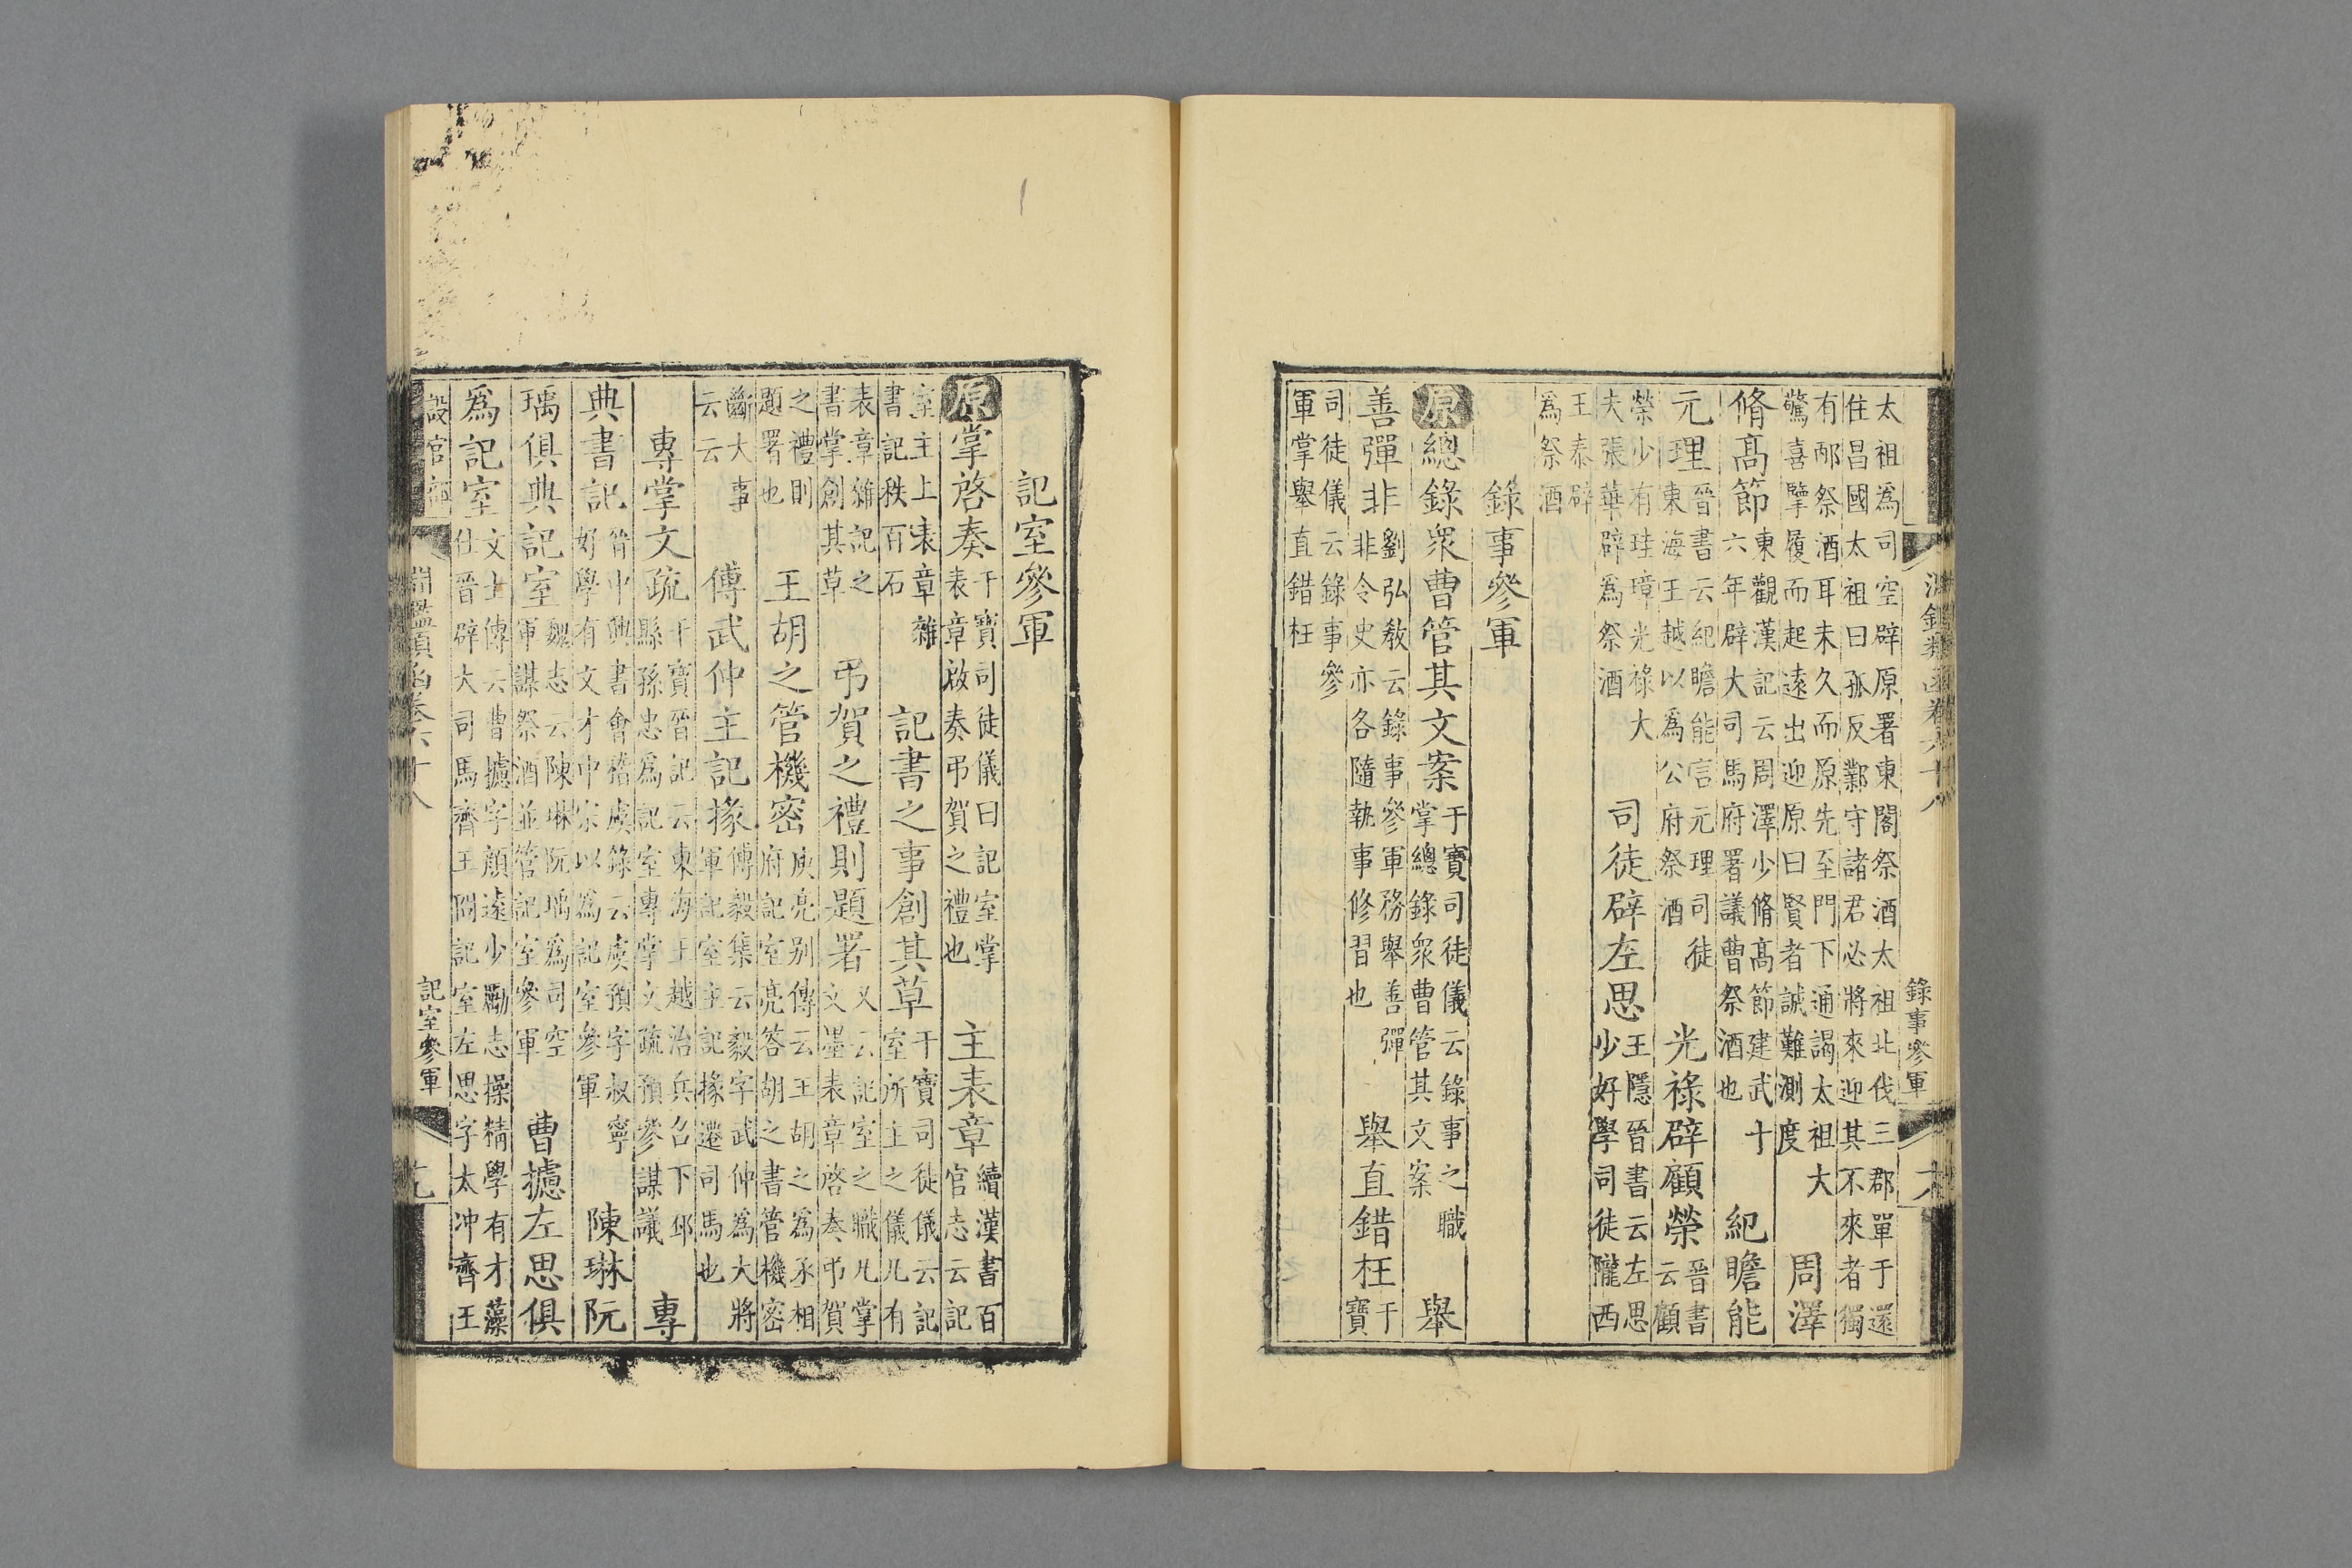 淵鑑類函卷六十八
錄事參軍
太祖爲司空辟原署東閣祭酒太祖北伐三郡單于還
住昌國太祖曰孤反鄴守諸君必將來迎其不來者獨
有邴祭酒耳未久而原先至門下通謁太祖大
驚喜擥履而起遠出迎原曰賢者誠難測度
周澤
脩高節
東觀漢記云周澤少脩高節建武十
六年辟大司馬府署議曹祭酒也
紀瞻能
元理
晉書云紀瞻能言元理司徒
東海王越以爲公府祭酒
光祿辟顧榮
晉書
云顧
榮少有珪璋光祿大
夫張華辟爲祭酒
司徒辟左思
王隱晉書云左思
少好學司徒隴西
王泰辟
爲祭酒
錄事參軍
原總錄衆曹管其文案
于寶司徒儀云錄事之職
掌總錄衆曹管其文案
舉
善彈非
劉弘敎云錄事參軍務舉善彈
非令史亦各隨執事修習也
舉直錯枉
于
寶
司徒儀云錄事參
軍掌舉直錯枉
記室參軍
原掌啓奏
干寶司徒儀曰記室掌
表章啟奏弔賀之禮也
主表章
續漢書百
官志云記
室主上表章雜
書記秩百石
記書之事創其草
干寶司徒儀云記
室所主之儀凡有
表章雜記之
書掌創其草
弔賀之禮則題署
又云記室之職凡掌
文墨表章啓奏弔賀
之禮則
題署也
王胡之管機密
庾亮别傳云王胡之爲丞相
府記室亮答胡之書管機密
斷大事
云云
傅武仲主記掾
傅毅集云毅字武仲爲大將
軍記室主記掾遷司馬也
專掌文疏
干寶晉記云東海王越治兵召下邳
縣孫忠爲記室專掌文疏預參謀議
專
典書記
晉中興書會稽虞錄云虞預字叔寧
好學有文才中宗以爲記室參軍
陳琳阮
瑀俱典記室
魏志云陳琳阮瑀爲司空
軍謀祭酒並管記室參軍
曹攄左思俱
爲記室
文士傳云曹攄字顏遠少勵志操精學有才藻
仕晉辟大司馬齊王冏記室左思字太冲齊王
淵鑑類函卷六十八
記室參軍